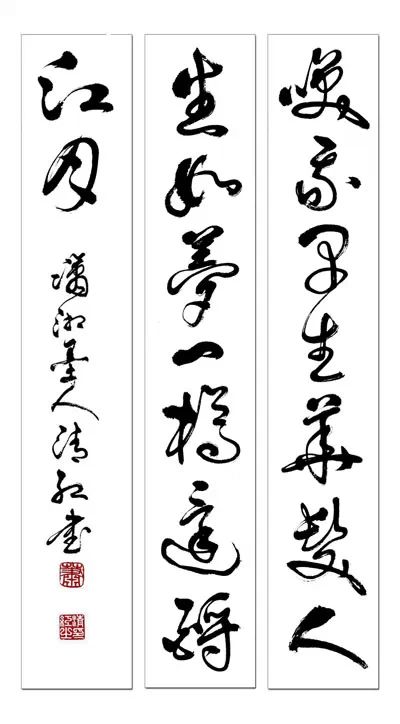 咲我早生華髮人
生如夢一樽還酹
江月
瀟湘墨人清紅書